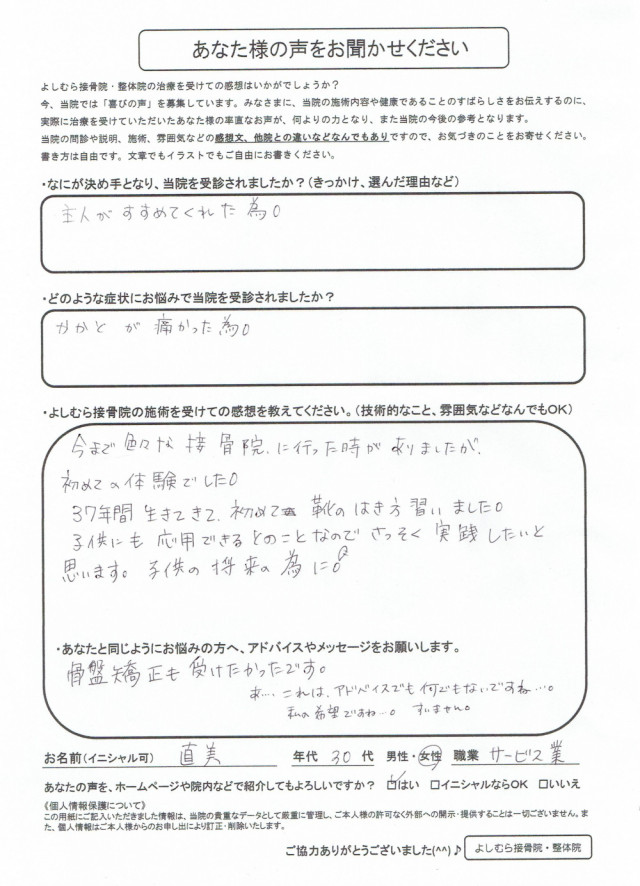 あなた様の声をお聞かせください
よしむら接骨院・整体院の治療を受けての感想はいかがでしょうか？
今、当院では「喜びの声」を募集しています。みなさまに、当院の施術内容や健康であることのすばらしさをお伝えするのに、
実際に治療を受けていただいたあなた様の率直なお声が、何よりの力となり、また当院の今後の参考となります。
当院の問診や説明、施術、雰囲気などの感想文、他院との違いなどなんでもありですので、お気づきのことをお寄せください。
書き方は自由です。文章でもイラストでもご自由にお書きください。
・なにが決め手となり、当院を受診されましたか？（きっかけ、選んだ理由など）
主人がすすめてくれた為。
・どのような症状にお悩みで当院を受診されましたか？
かかとが痛かった為。
・よしむら接骨院の施術を受けての感想を教えてください。（技術的なこと、雰囲気などなんでもOK）
今まで色々な接骨院に行った時がありましたが、
初めての体験でした。
37年間生きてきて、初めて靴のはき方習いました。
子供にも応用できるとのことなのでさっそく実践したいと
思います。子供の将来の為に。
・あなたと同じようにお悩みの方へ、アドバイスやメッセージをお願いします。
骨盤矯正も受けたかったです。
あ…これは、アドバイスでも何でもないですね…。
私の希望ですね…。すいません。
お名前（イニシャル可） 直美 年代 30代 男性・女性 職業 サービス業
あなたの声を、ホームページや院内などで紹介してもよろしいですか？ ☑はい □イニシャルならOK □いいえ
《個人情報保護について》
この用紙にご記入いただきました情報は、当院の貴重なデータとして厳重に管理し、ご本人様の許可なく外部への開示・提供することは一切ございません。ま
た、個人情報はご本人様からのお申し出により訂正・削除いたします。
ご協力ありがとうございました(^^)♪ よしむら接骨院・整体院